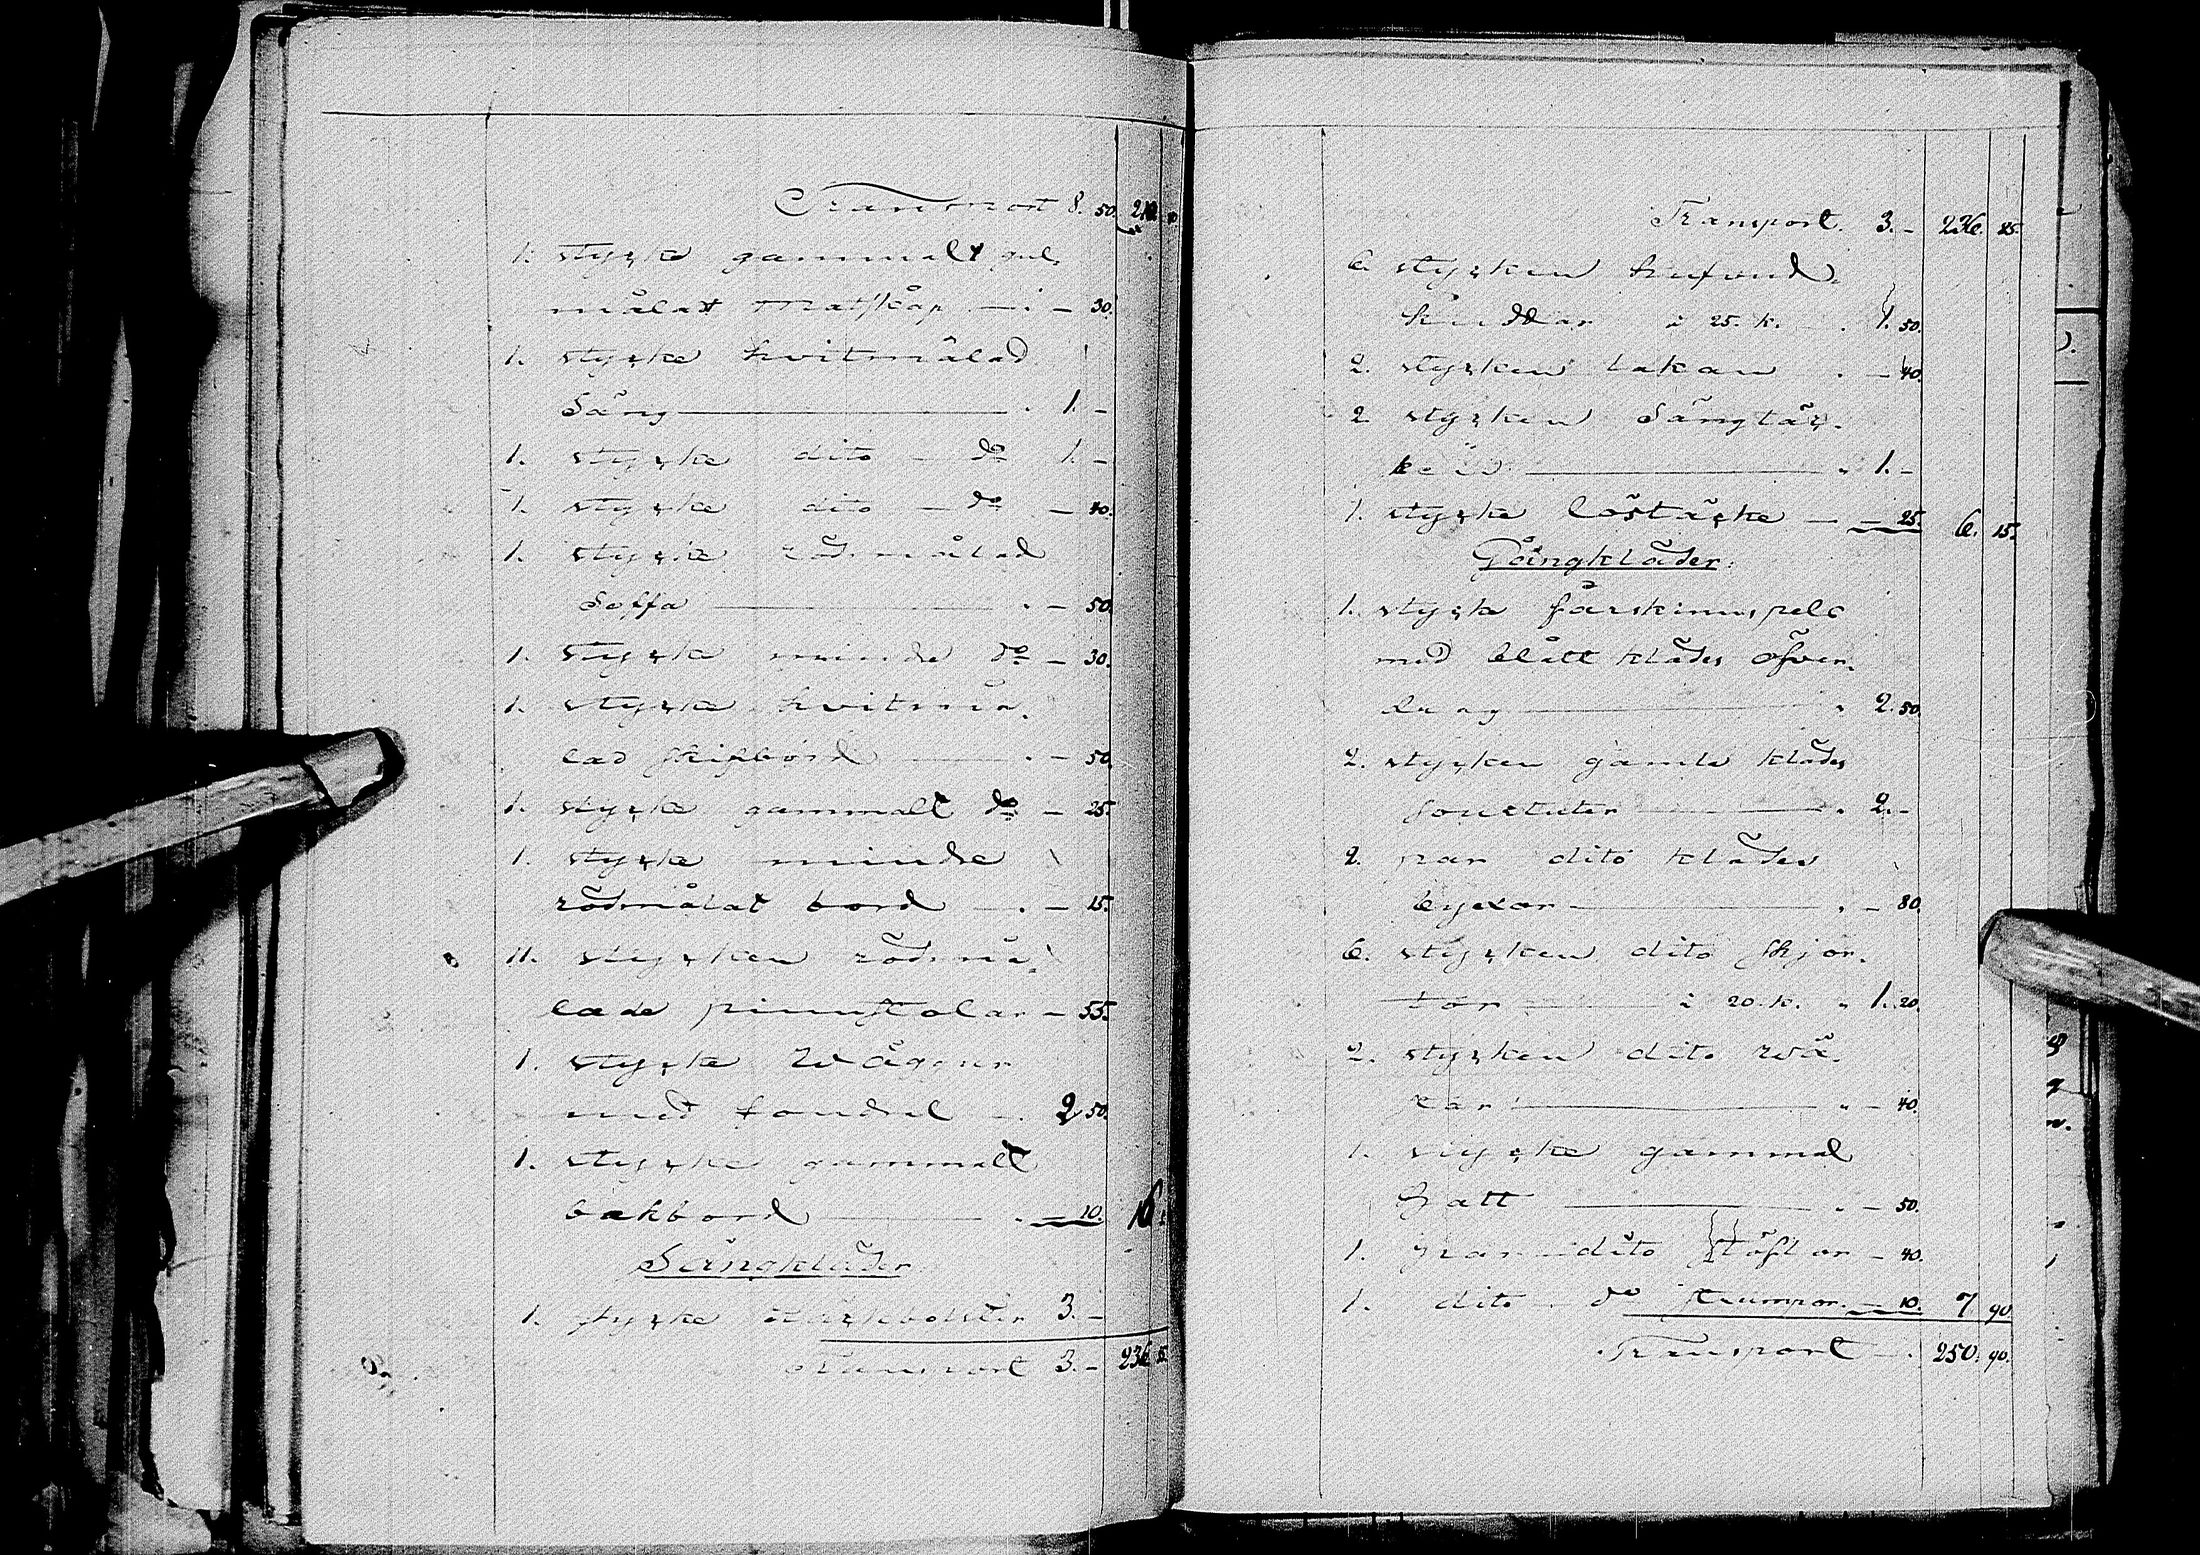 Transport 8. 50. 210.
1. stycke gammalt gul-
målat matskåp — . — 30.
1. stycke hvitmålad
Säng — . 1. —
1. stycke dito — do 1. —
1. stycke dito — do — 40.
1. stycke rödmålad
Soffa — . — 50.
1. stycke mindre do — 30.
1. stycke hvitmå-
lad skifbord — . — 50.
1. stycke gammalt do — 25.
1. stycke mindre
rödmålat bord — . — 15.
11. stycken rödmå-
lade pinnstolar — 55.
1. stycke Wäggur
med fondral — . 2 50.
1. stycke gammalt
bakbord — . — 10. 16.
Sängkläder
1. stycke bolster 3. —
Transport 3. — 236
Transport. 3. — 236. 85.
6. stycken hufvud-
kuddar à 25. k. . 1. 50.
2. stycken lakan . — 40.
2. stycken Sängtäc-
ken — " 1. —
1. stycke löstäcke — — 25. 6. 15.
Gångkläder.
1. stycke fårskinnspels
med blått klädes öfver-
drag — " 2. 50.
2. stycken gamla klädes
sourtuter — " 2. —
2. par dito klädes
byxor — " — 80.
6. stycken dito skjor-
tor — à 20. k. " 1. 20.
2. stycken dito wä-
star — " — 40.
1. stycke gammal
hatt — " — 50.
1. par dito stöflor — 40.
1. dito do strumpor. — 10. 7 90
Transport — . 250. 90.